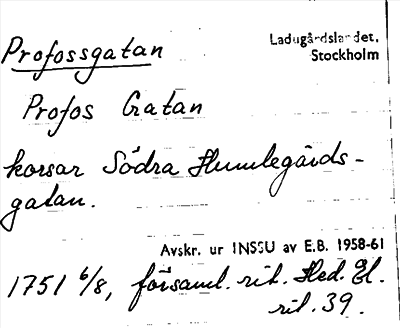 Profossgatan
Ladugårdslandet,
Stockholm
Profos Gatan
korsar Södra Humlegårds-
gatan.
Avskr. ur INSSU av E.B. 1958-61
1751 6/8, församl. rit. Hed. El.
rit. 39.